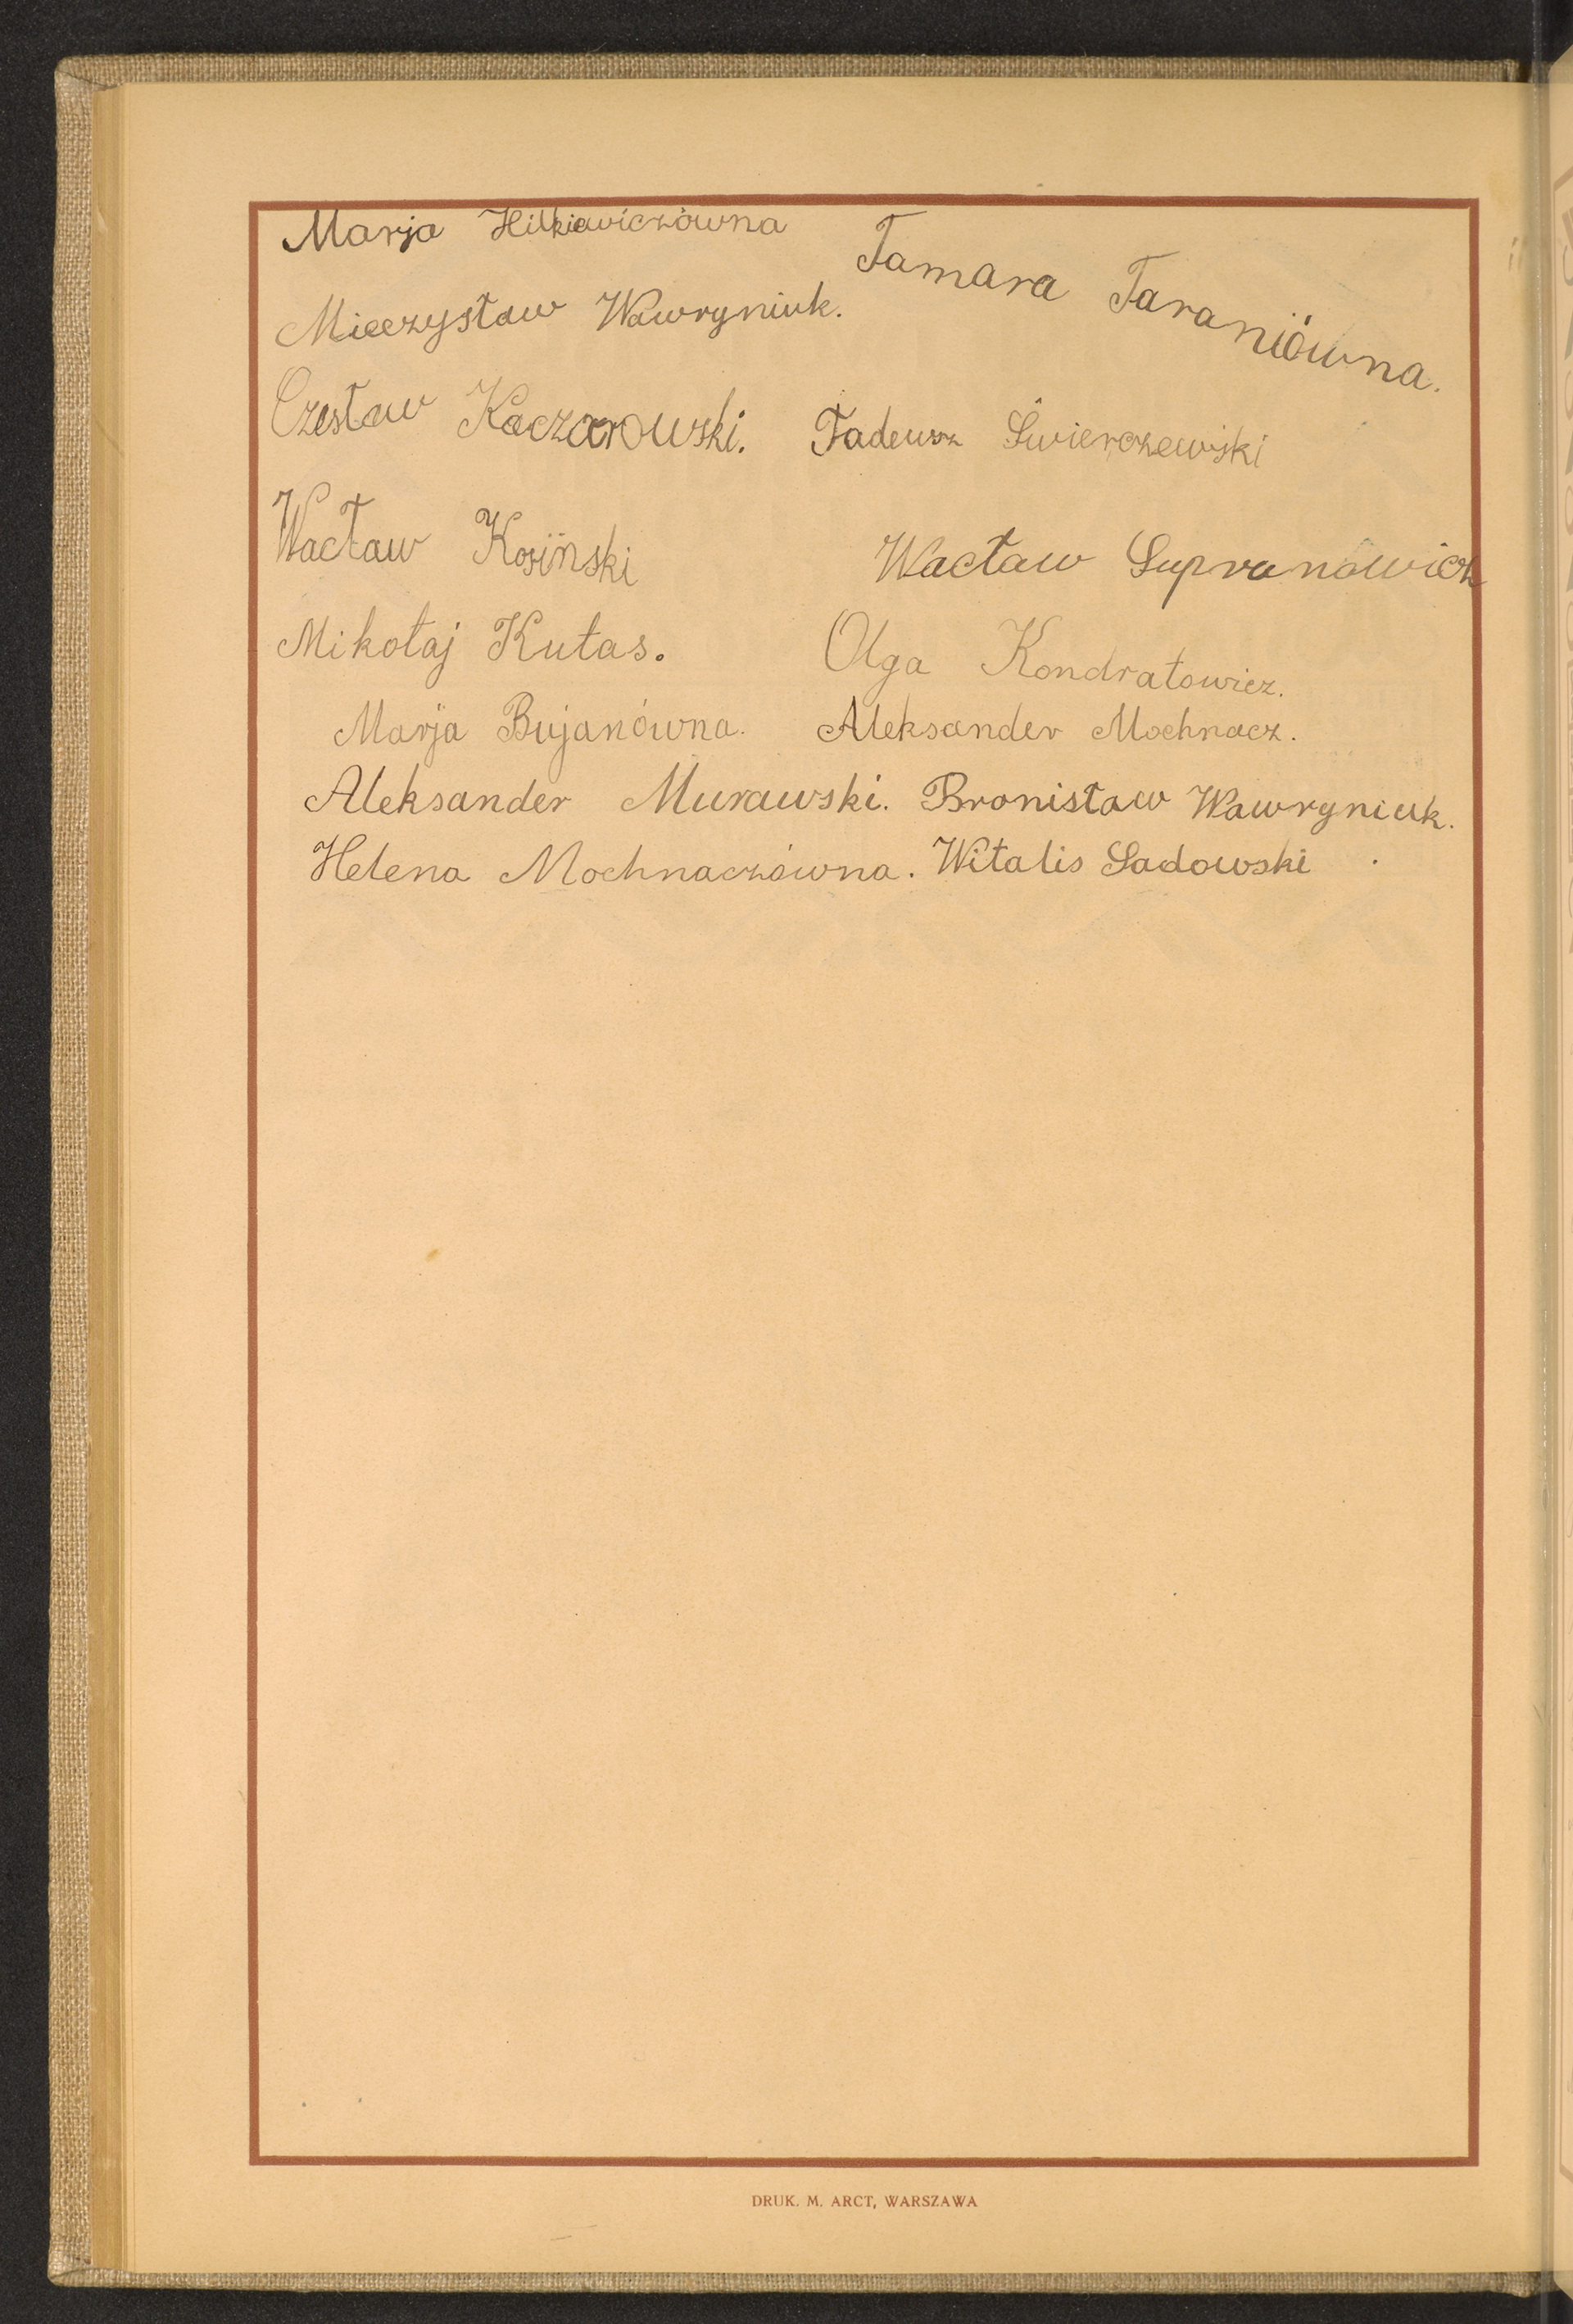 Marja Hilkiewiczówna
Tamara Taraniówna.
Mieczysław Wawryniuk.
Czesław Kaczarowski. Tadeusz Świerczewski
Wacław Kosiński Wacław Supranowicz
Mikołaj Kutas. Olga Kondratowicz.
Marja Bujanówna. Aleksander Mochnacz.
Aleksander Murawski. Bronisław Wawryniuk.
Helena Mochnaczówna. Witalis Sadowski
DRUK. M. ARCT, WARSZAWA